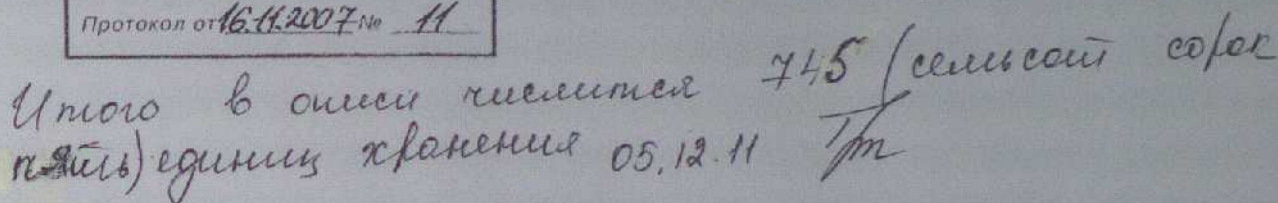 Протокол от 16.11.2007 № 11
Итого в описи числится 745 (семьсот сорок
пять) единиц хранения 05.12.11